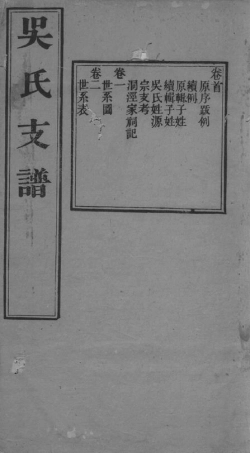 吳氏支譜
卷首
原序跋例
續例
原輯子姓
續輯子姓
吳氏姓源
宗支考
洞涇家祠記
卷一
世系圖
卷二
世系表